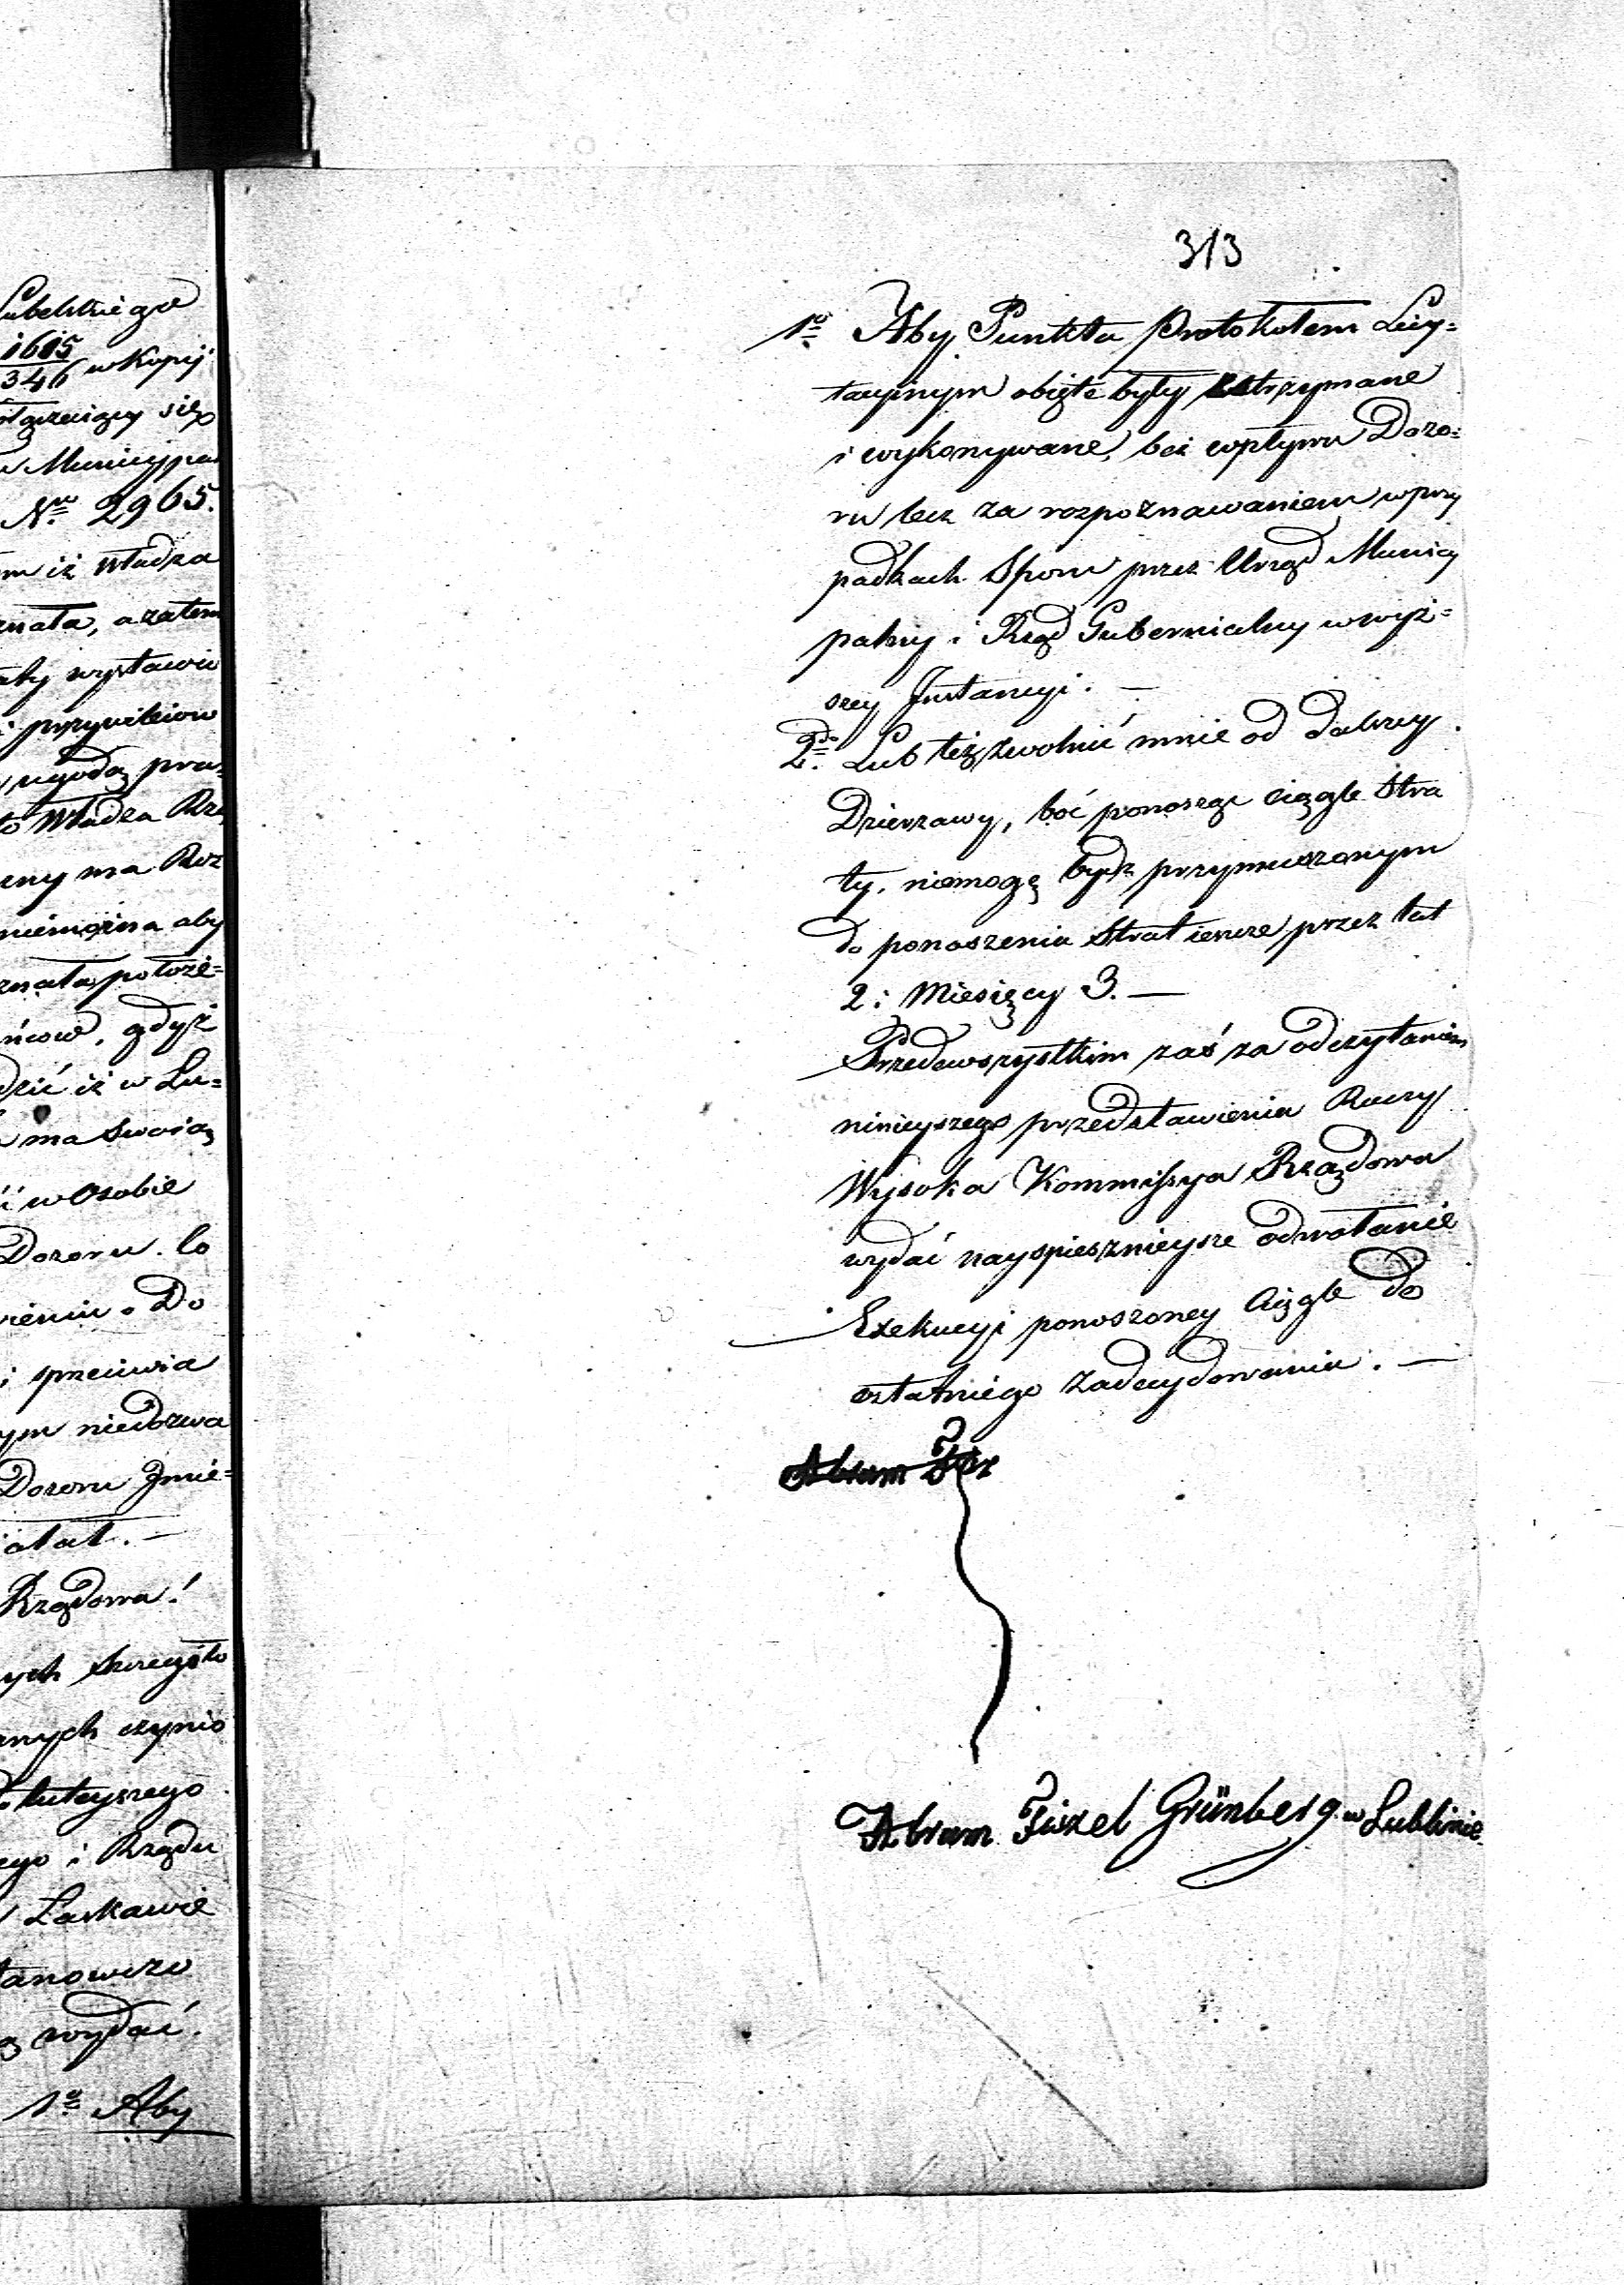 Lubelskiego
1615
346 w Kopij
się
Municypal
No 2965.
iż Władza
znała, a zatem
wystawić
przywileiow
ugodą pra-
to Władza Rzą
ma Roz
niemożna aby
znała położe=
ńcow, gdyż
dzić iż w Lu=
ma swoią
w Osobie
Dozoru. Co
Do
i sprzeciwia
ym niedozwa
Dozoru Jmie=
Rządowa!
ych
nych czynio
tuteyszego
ego i Rządu
Łaskawie
tanowczo
wydać.
1o Aby
313
1o Aby Punkta Protokołem Licy=
tacyinym obięte były utrzymane
i wykonywane, bez wpływu Dozo=
ru lecz za rozpoznawaniem w przy
padkach Sporu przez Urząd Municy
palny i Rząd Gubernialny w wyż=
szey Instancyi. —
2do Lub też zwolnić mnie od dalszey
Dzierzawy, boć ponosząc ciągle Stra
ty, niemogę bydź przymuszonym
do ponoszenia Strat ieszcze przez lat
2: Miesięcy 3. —
Przedewszystkim zaś za odczytaniem
ninieyszego przedstawienia Raczy
Wysoka Kommissya Rządowa
wydać nayspiesznieysze odwołanie
Exekucyi ponoszoney ciągle do
ostatniego zadecydowania. —
Abram
Abram Fiszel Grünberg w Lublinie